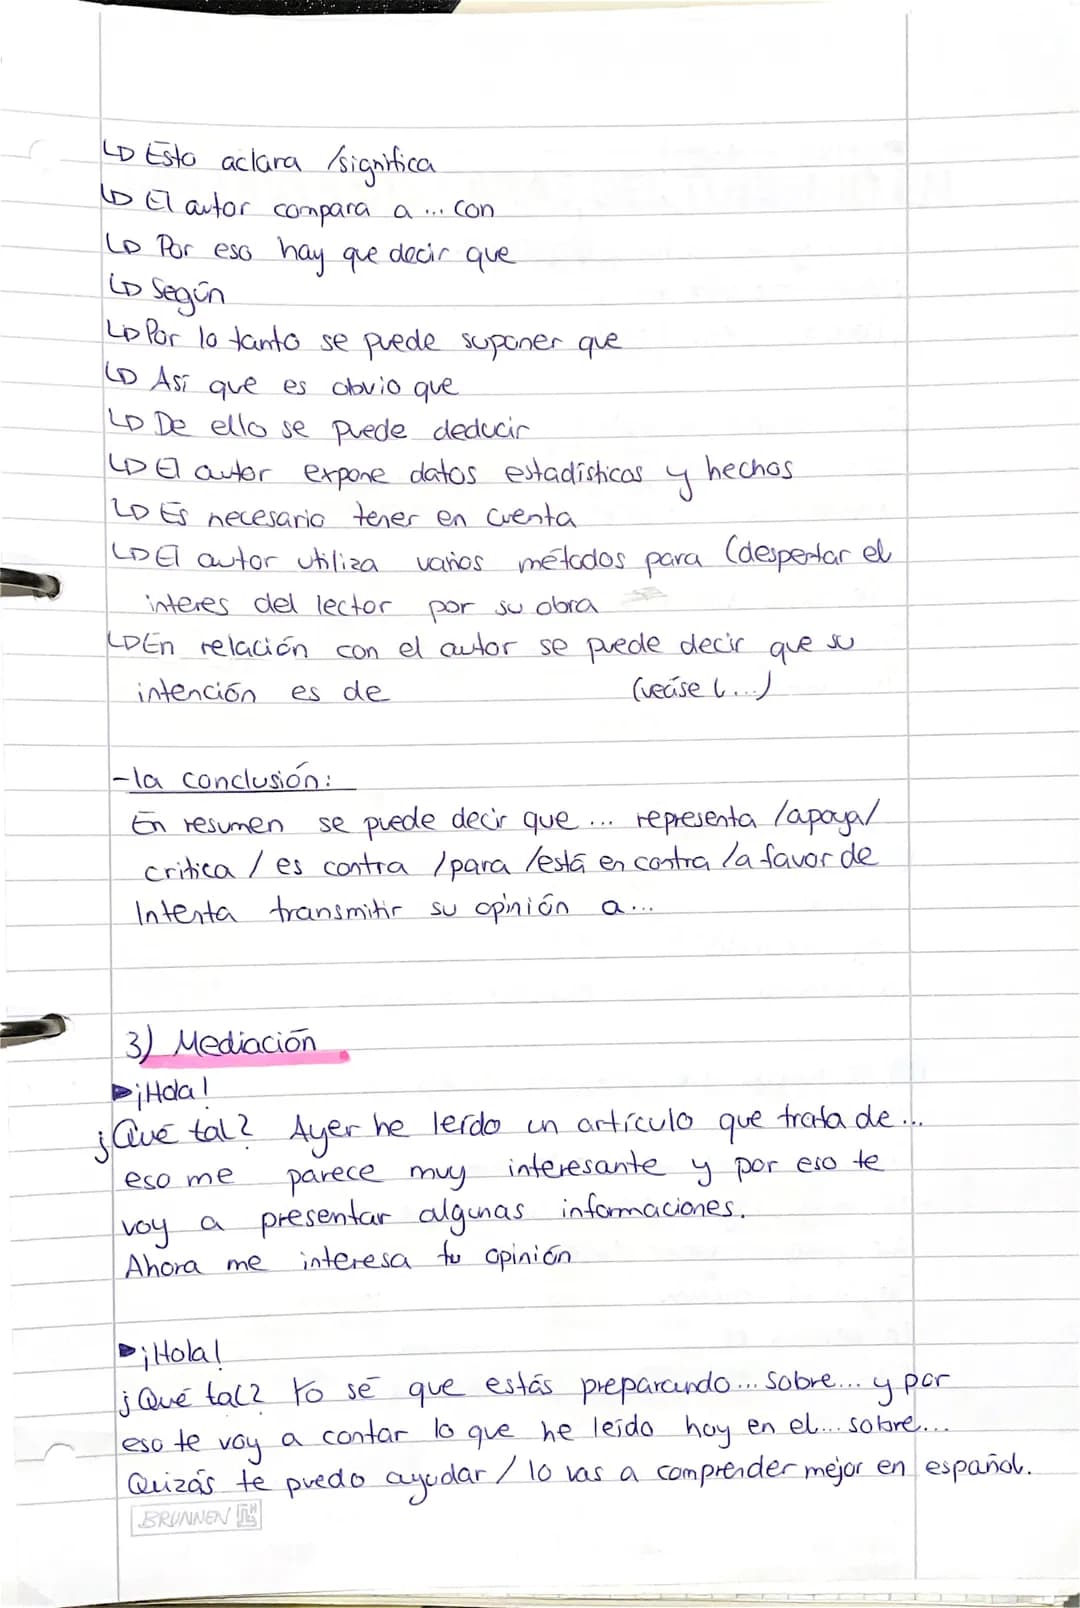 ↳ Esto aclara /significa
↳ El autor compara a ... con
↳ Por eso hay que decir que
↳ Según
↳ Por lo tanto se puede suponer que
↳ Así que es obvio que
↳ De ello se puede deducir
↳ El autor expone datos estadísticos y hechos
↳ Es necesario tener en cuenta
↳ El autor utiliza varios métodos para (despertar el
interes del lector por su obra
↳ En relación con el autor se puede decir que su
intención es de (veáse (...)
-la conclusión:
En resumen se puede decir que ... representa /apoya/
critica / es contra /para /está en contra /a favor de
Intenta transmitir su opinión a...
3) Mediación
▶¡Hola!
¿Qué tal? Ayer he leído un artículo que trata de ...
eso me parece muy interesante y por eso te
voy a presentar algunas informaciones.
Ahora me interesa tu opinión
▶¡Hola!
¿Qué tal? Yo sé que estás preparando ... sobre ... y por
eso te voy a contar lo que he leído hoy en el ... sobre ...
Quizás te puedo ayudar / lo vas a comprender mejor en español.
BRUNNEN